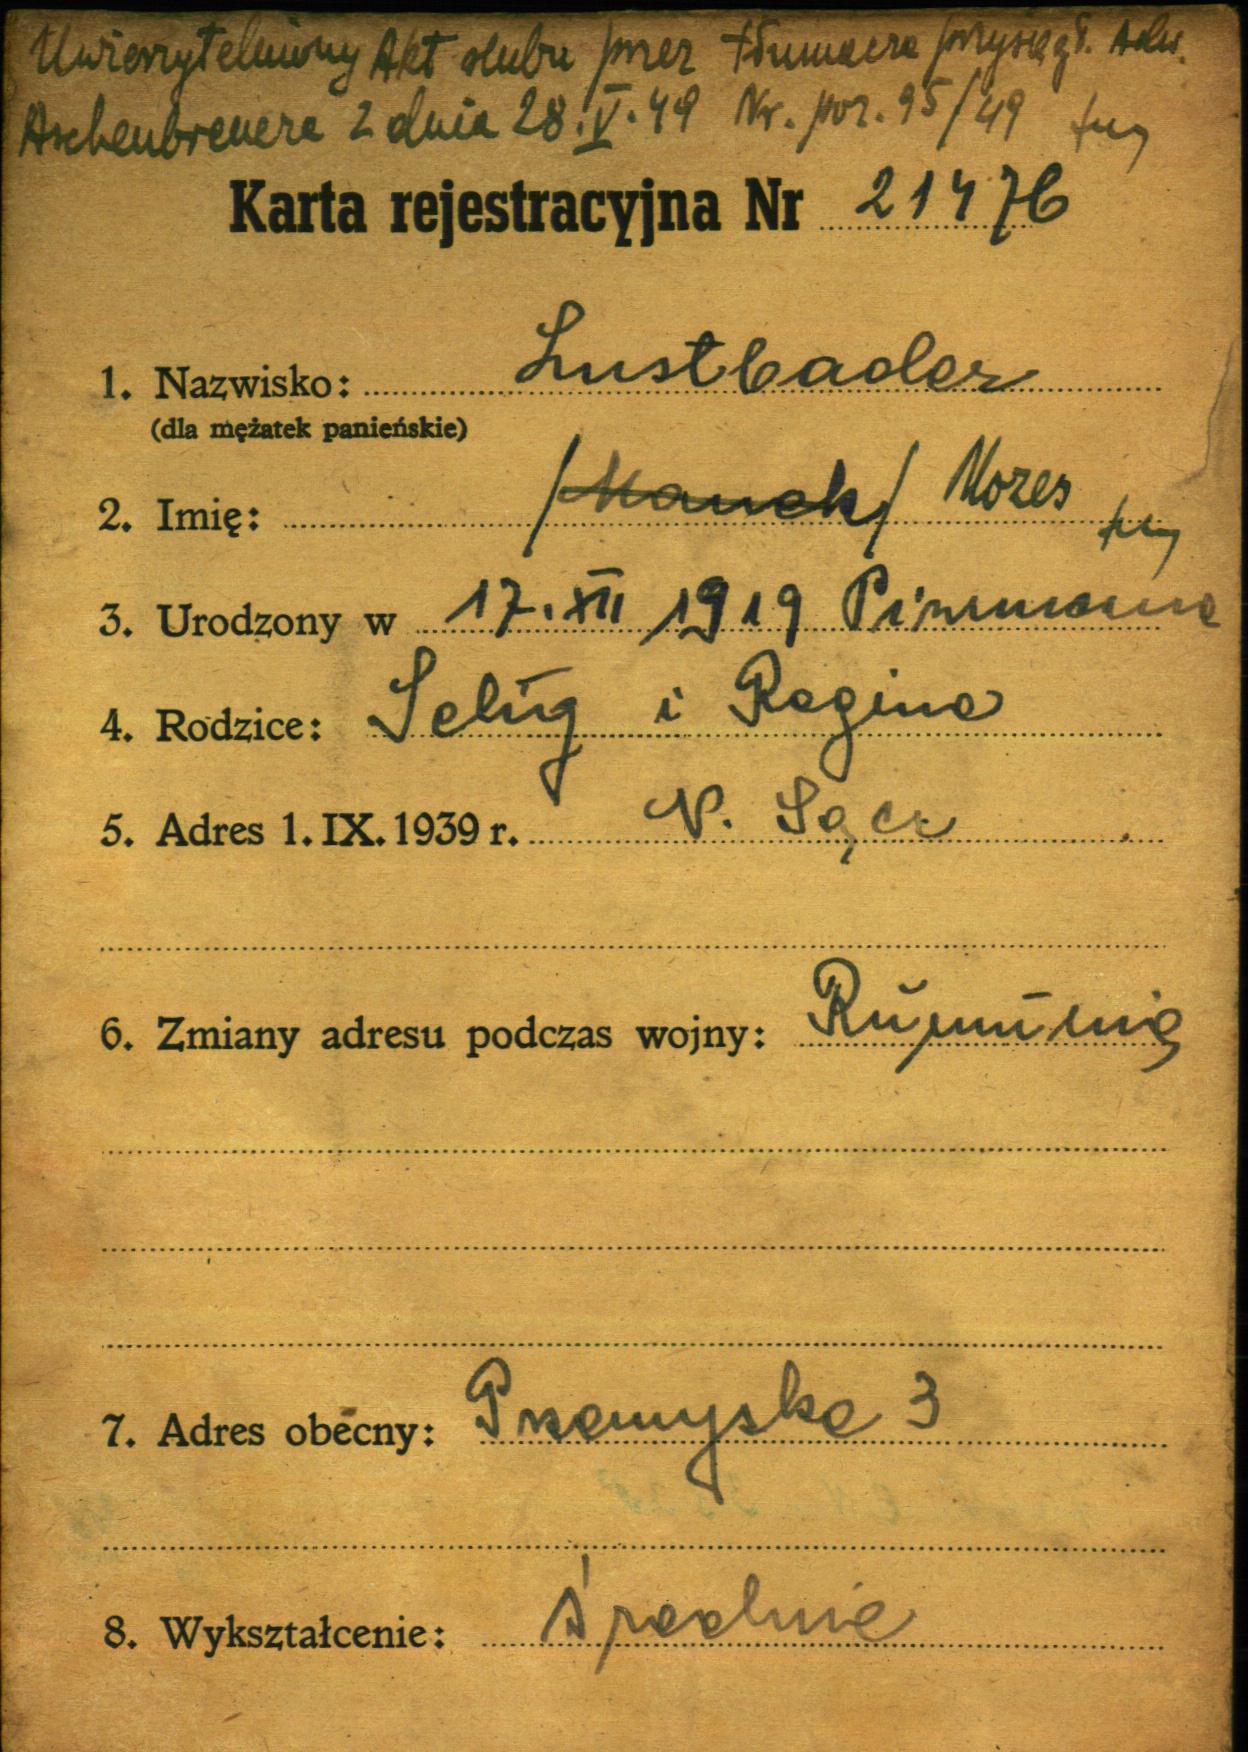 Uwierzytelniony Akt ślubu przez tłumacza przysięgł. Adw.
Aschenbrenera z dnia 28.V.49 Nr. por. 95/49
Karta rejestracyjna Nr 21476
1. Nazwisko: Lustbader
(dla mężatek panieńskie)
2. Imię: /Manek/ Mozes
3. Urodzony w 17.XII 1919
4. Rodzice: Selig i Regina
5. Adres 1. IX. 1939 r. N. Sącz
6. Zmiany adresu podczas wojny: Rumunia
7. Adres obecny: Przemyska 3
8. Wykształcenie: średnie